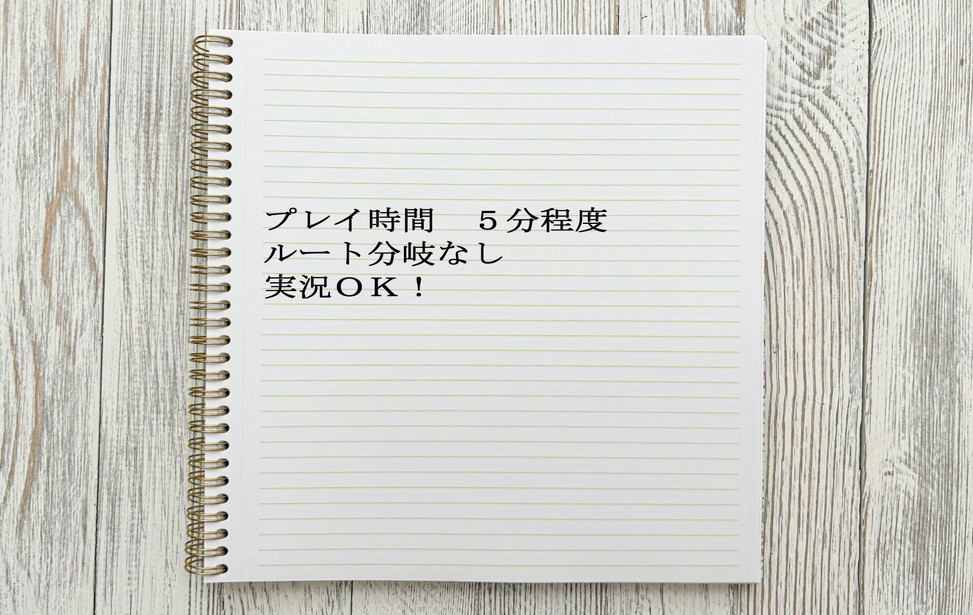 プレイ時間　５分程度
ルート分岐なし
実況ＯＫ！